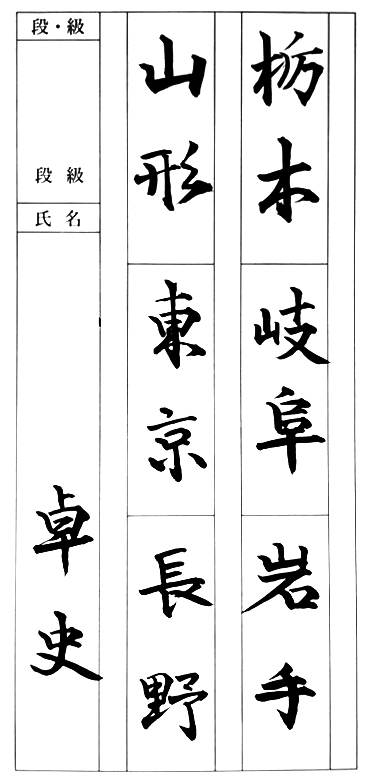 栃木
岐阜
岩手
山形
東京
長野
段・級
段級
氏名
卓史